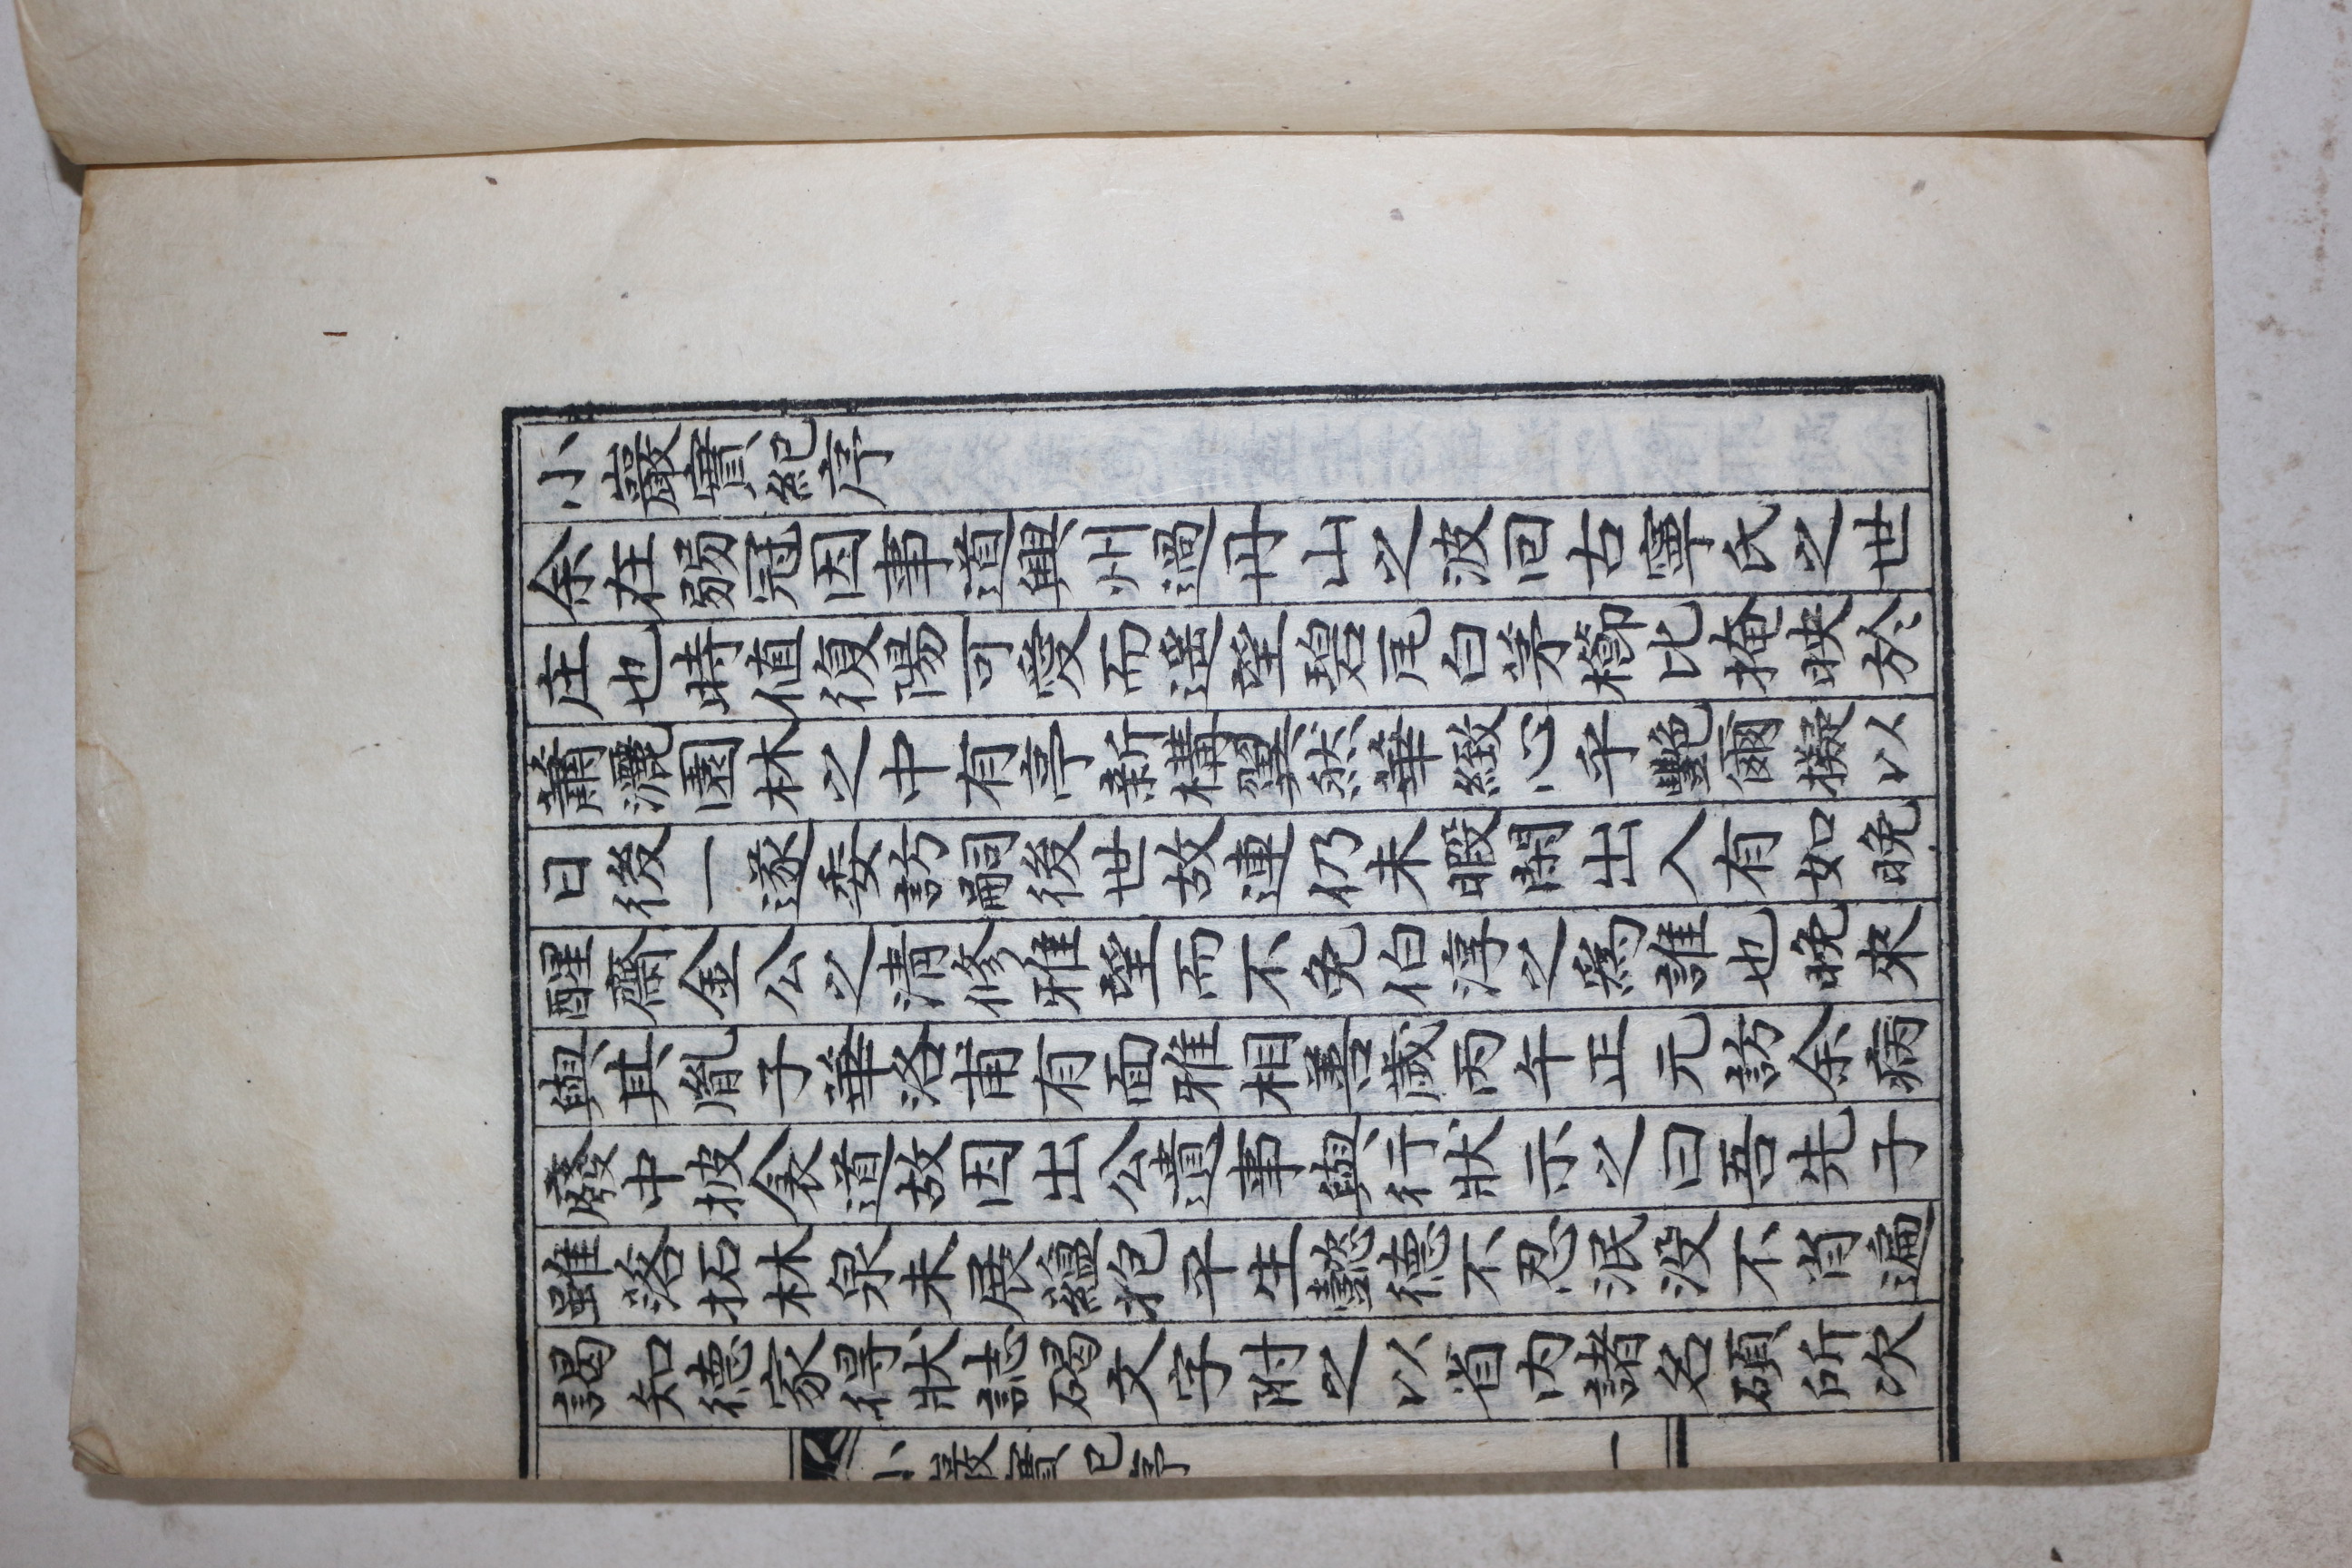 小巖實紀序
余在弱冠因事道興州過丹山之波回古寧氏之世
庄也時値復陽可愛而遙望碧瓦白茅櫛比掩映於
蕭灑園林之中有亭新構翼然華緻心乎艶爾擬以
日後一遂委訪嗣後世故連仍未暇閒出入有如晩
醒齋金公之淸修雅望而不免伯淳之爲誰也晩來
與其胤子華洛甫有面雅相善歲丙午正元訪余病
廢中披衾道故因出公遺事與行狀示之曰吾先子
雖落拓林泉未展蘊抱平生懿德不忍泯没不肖遍
謁知德家得狀誌碣文字附之以省内諸名碩所次
小巖實紀序 一